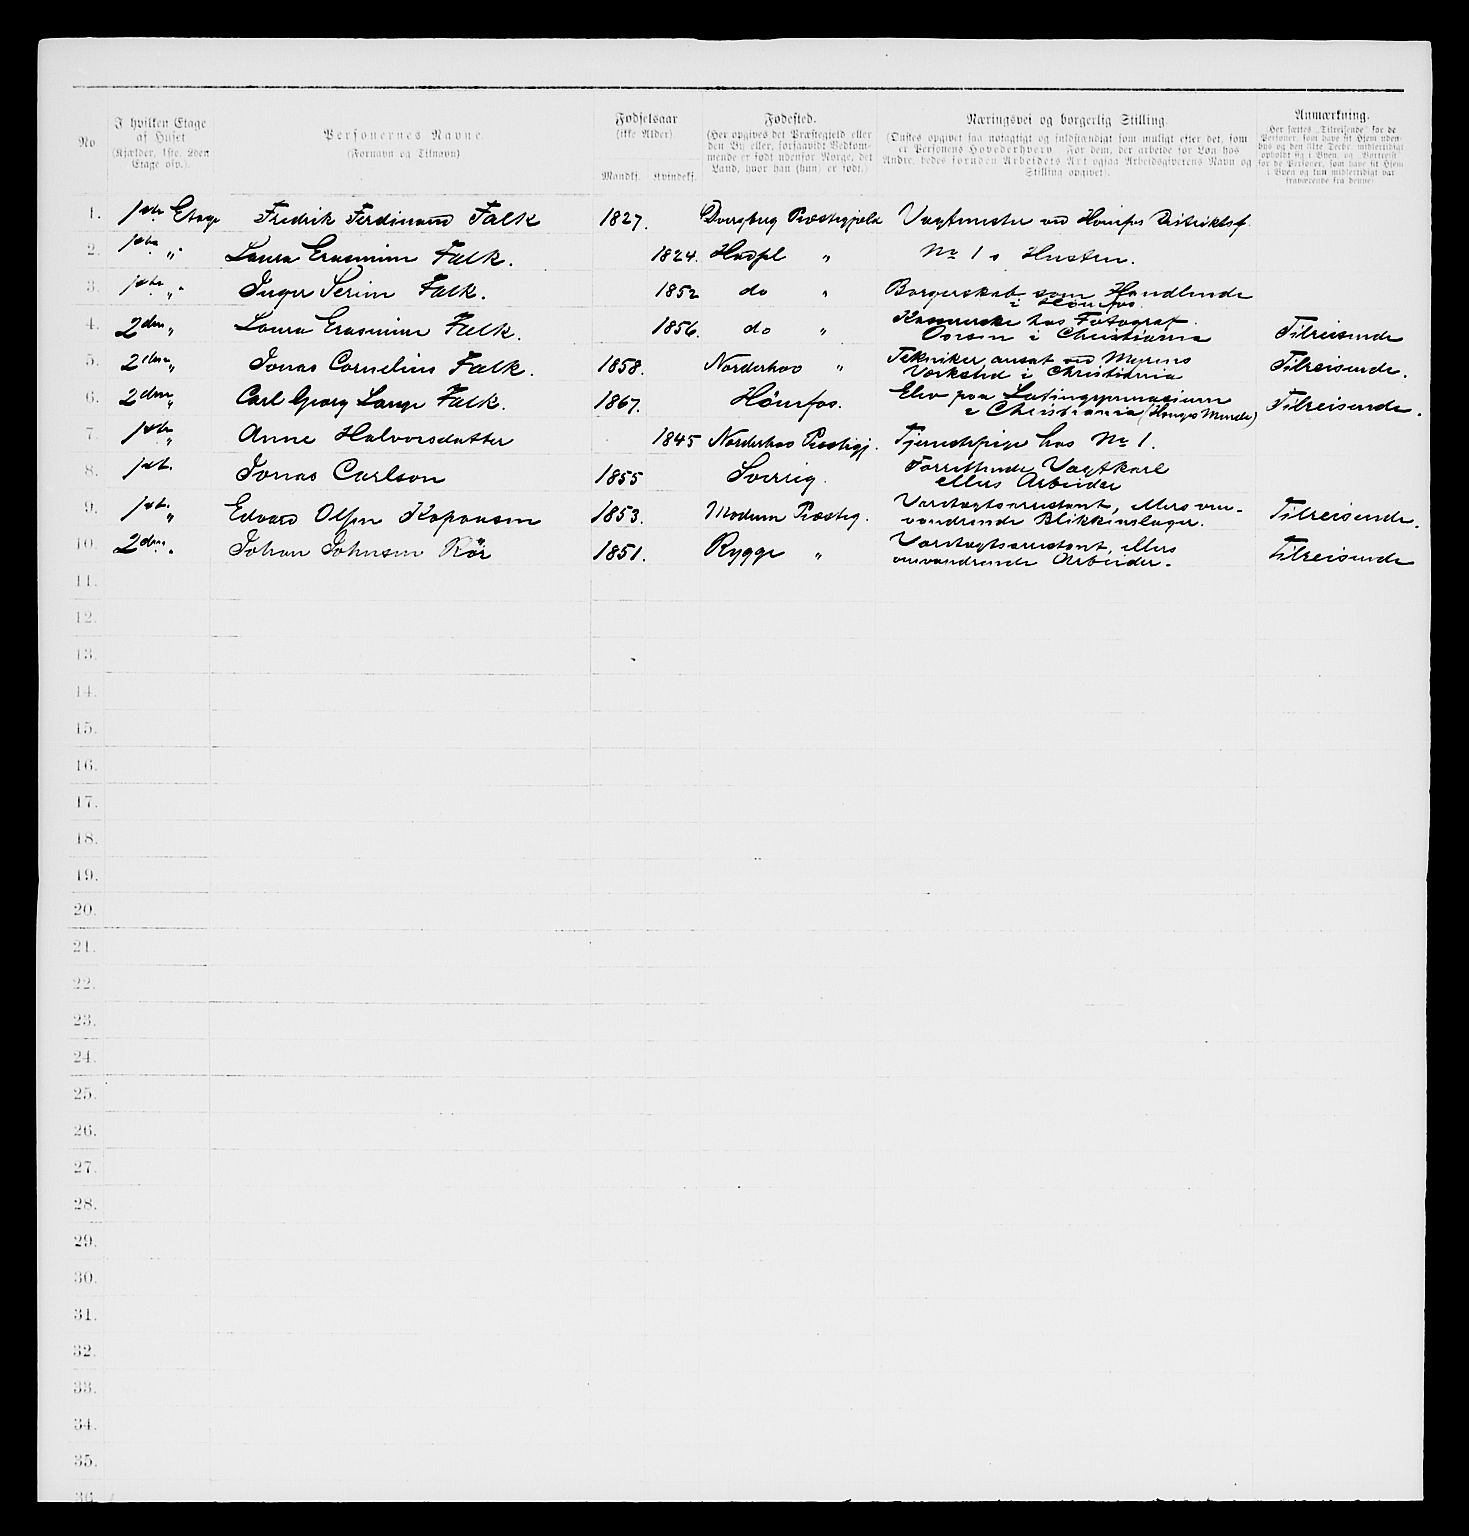 No.
I hvilken Etage af Huset (Kjælder, 1ste, 2den Etage osv.).
Personernes Navne. (Fornavn og Tilnavn)
Fødselsaar (ikke Alder) Mandkj. Kvindekj.
Fødested. (Her opgives det Præstegjeld eller den By eller, forsaavidt Vedkommende er født udenfor Norge, det Land, hvor han (hun) er født.)
Næringsvei og borgerlig Stilling. (Ønskes opgivet saa nøiagtigt og fuldstændigt som muligt efter det, som er Personens Hovederhverv. For dem, der arbeide for Løn hos Andre, bedes foruden Arbeidets Art ogsaa Arbeidsgiverens Navn og Stilling opgivet).
Anmærkning. Her sættes „Tilreisende“ for de Personer, som have sit Hjem udenbys og den 31te Decbr. midlertidigt opholdt sig i Byen, og „Bortreist“ for de Personer, som have sit Hjem i Byen og kun midlertidigt var fraværende fra denne)
1. 1ste Etage Fredrik Ferdinand Falk 1827. Dverberg Præstegjeld Vagtmester ved Hønefos Distriktsf.
2. 1ste „ Laura Erasmine Falk. 1824. Hadsel „ No 1 s Hustru.
3. 1ste „ Inger Serine Falk. 1852 do „ Borgerskab som Handlende i Hønefos.
4. 2den „ Laura Erasmine Falk. 1856. do „ hos Fotograf i Christiania Tilreisende
5. 2den „ Jonas Cornelius Falk. 1858. Norderhov „ Tekniker ansat ved Myrens Værksted i Christiania Tilreisende.
6. 2den „ Carl Georg Lange Falk. 1867. Hönefos. Elev paa Latingymnasium i Christiania Tilreisende.
7. 1ste „ Anne Halvorsdatter 1845 Norderhov Præstegj. Tjenestepige hos No 1.
8. 1ste Jonas Carlson 1855 Sverrig. Forrettende Vagtkarl ellers Arbeider
9. 1ste „ Edvard Olsen Kopousen 1853. Modum Præsteg. Varetægtsarrestant, ellers omvandrende Blikkenslager. Tilreisende.
10. 2den „ Johan Johnsen Rör 1851. Rygge „ Varetægtsarrestant, ellers omvandrende Arbeider. Tilreisende
11.
12.
13.
14.
15.
16.
17.
18.
19.
20.
21.
22.
23.
24.
25.
26.
27.
28.
29.
30.
31.
32.
33.
34.
35.
36.